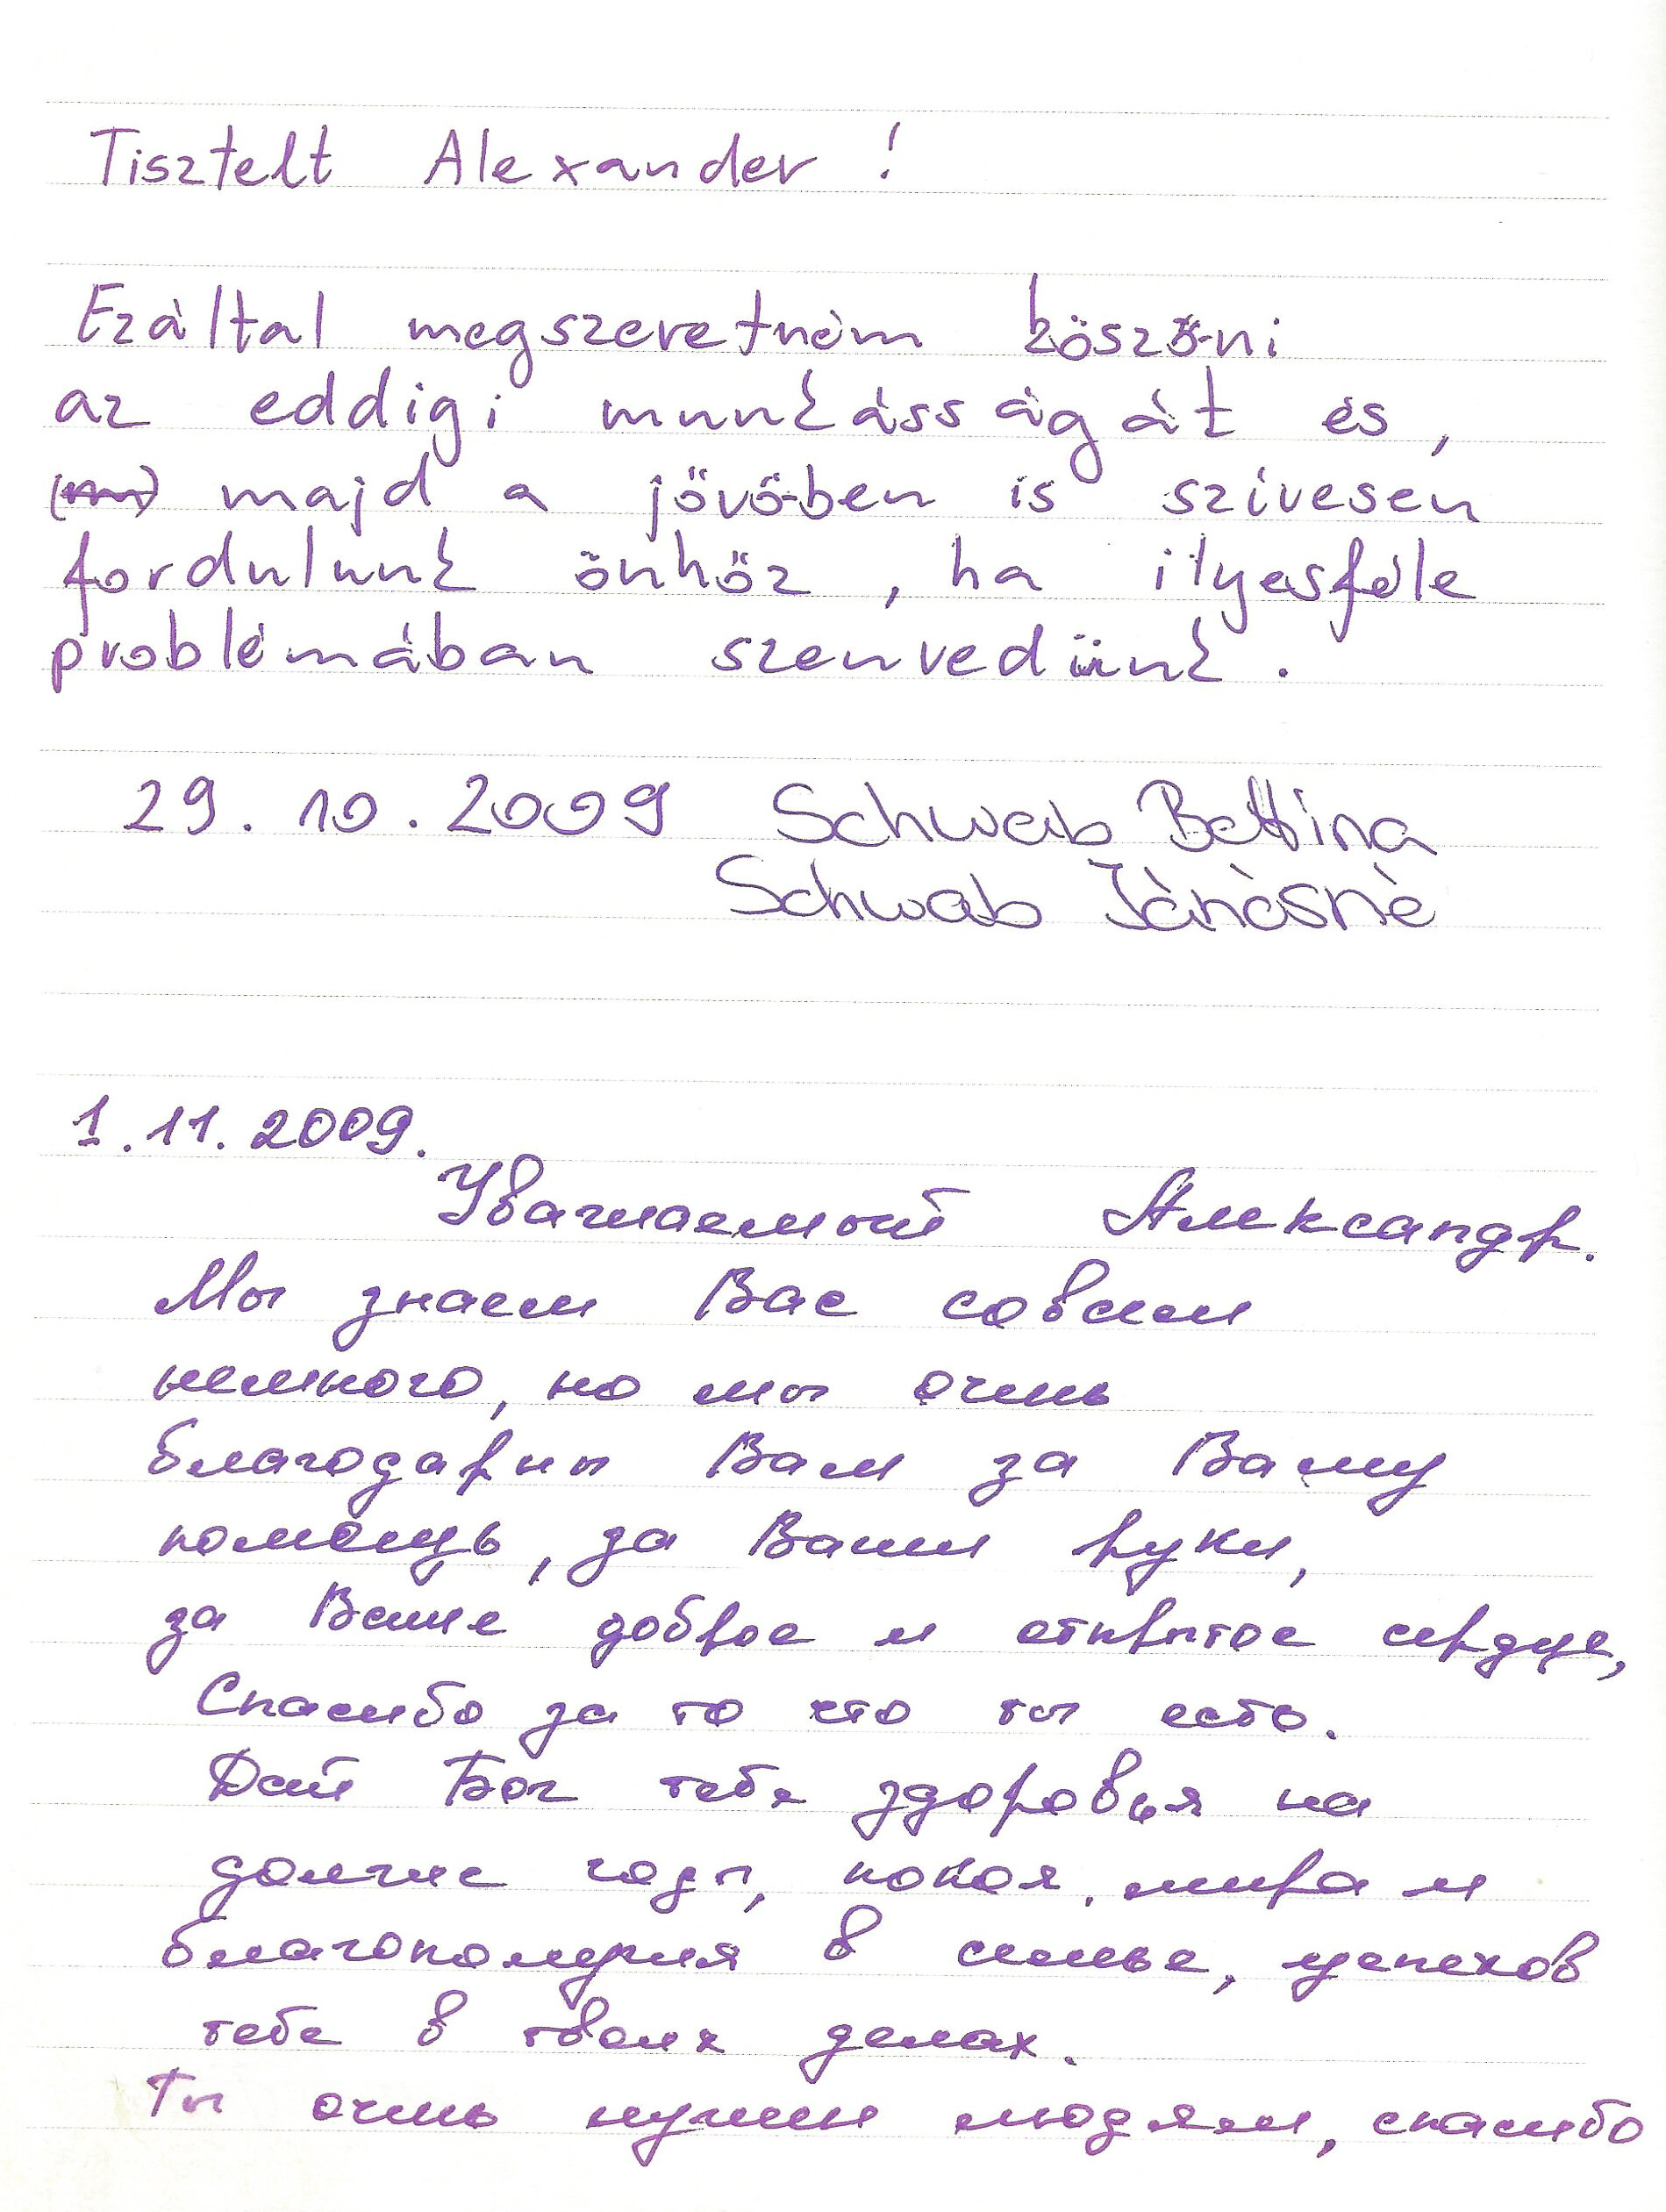 Tisztelt Alexander !
Ezáltal megszeretném köszöni
az eddigi munkásságát és,
majd a jövőben is szívesen
fordulunk önhöz, ha ilyesféle
problémában szenvedünk.
29. 10. 2009 Schwab Bettina
Schwab Jánosné
1. 11. 2009.
Уважаемый Александр.
Мы знаем Вас совсем
немного, но мы очень
благодарны Вам за Вашу
помощь, за Ваши руки,
за Ваше доброе и открытое сердце,
Спасибо за то что ты есть.
Дай Бог тебе здоровья на
долгие годы, покоя, мира и
благополучия в семье, успехов
тебе в твоих делах.
Ты очень нужен людям, спасибо